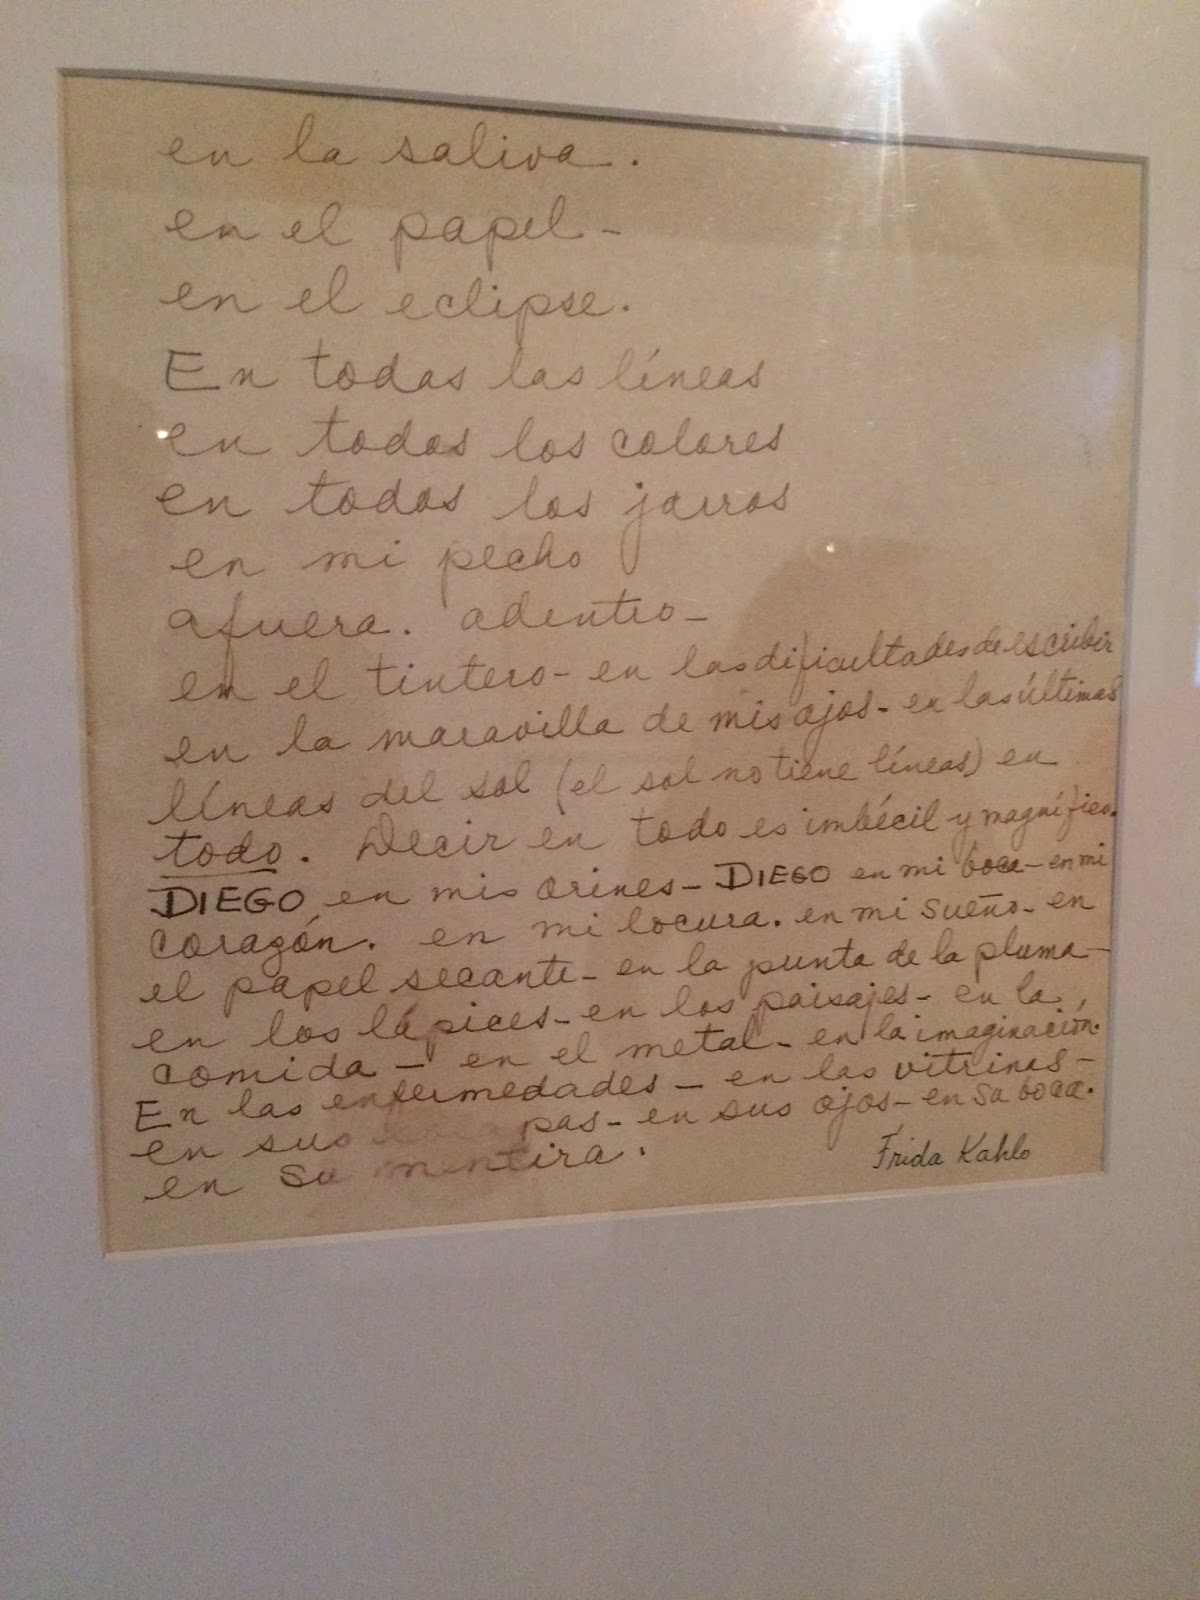 en la saliva.
en el papel -
en el eclipse.
En todas las líneas
en todos los colores
en todos los jarros
en mi pecho
afuera. adentro -
en el tintero - en las dificultades de escribir
en la maravilla de mis ojos - en las últimas
líneas del sol (el sol no tiene líneas) en
todo. Decir en todo es imbécil y magnífico.
DIEGO en mis orines - DIEGO en mi boca - en mi
corazón. en mi locura. en mi sueño - en
el papel secante - en la punta de la pluma -
en los lápices - en los paisajes - en la
comida - en el metal - en la imaginación.
En las enfermedades - en las vitrinas -
en sus pas - en sus ojos - en su boca.
en su mentira.
Frida Kahlo